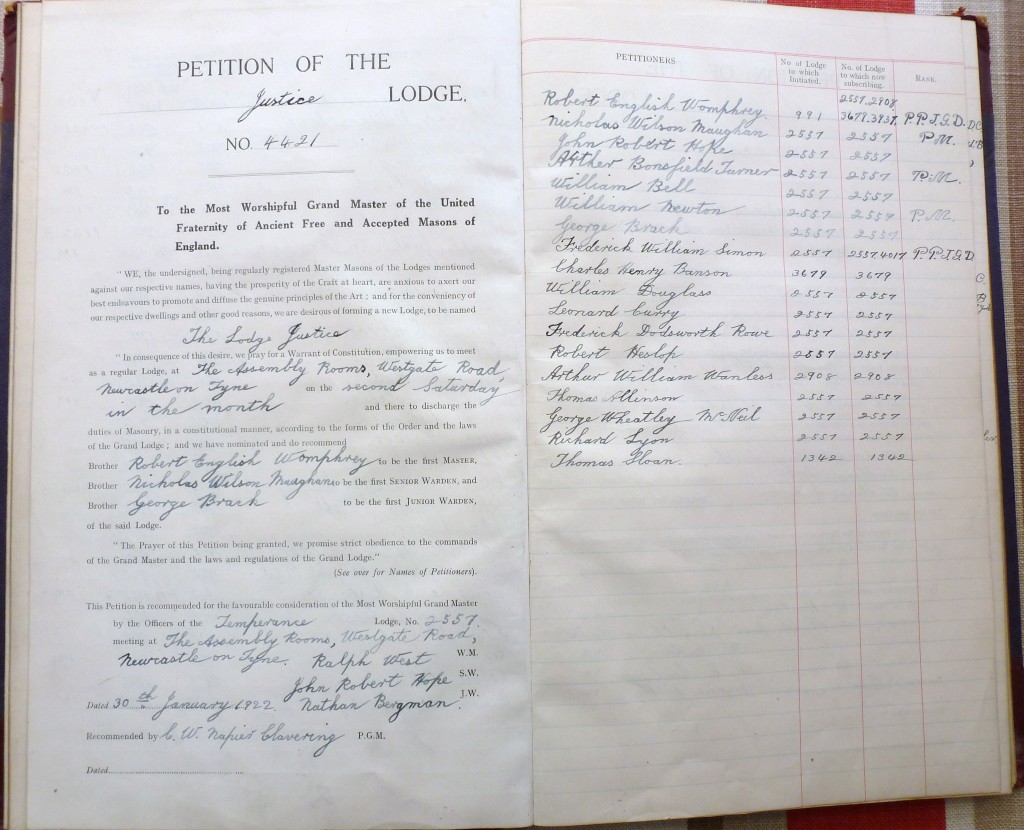 PETITION OF THE
Justice LODGE.
NO. 4421
To the Most Worshipful Grand Master of the United
Fraternity of Ancient Free and Accepted Masons of
England.
"WE, the undersigned, being regularly registered Master Masons of the Lodges mentioned
against our respective names, having the prosperity of the Craft at heart, are anxious to exert our
best endeavours to promote and diffuse the genuine principles of the Art ; and for the conveniency of
our respective dwellings and other good reasons, we are desirous of forming a new Lodge, to be named
The Lodge Justice
"In consequence of this desire, we pray for a Warrant of Constitution, empowering us to meet
as a regular Lodge, at The Assembly Rooms, Westgate Road
Newcastle on Tyne on the second Saturday
in the month and there to discharge the
duties of Masonry, in a constitutional manner, according to the forms of the Order and the laws
of the Grand Lodge ; and we have nominated and do recommend
Brother Robert English Womphrey to be the first MASTER,
Brother Nicholas Wilson Maughan to be the first SENIOR WARDEN, and
Brother George Brack to be the first JUNIOR WARDEN,
of the said Lodge.
"The Prayer of this Petition being granted, we promise strict obedience to the commands
of the Grand Master and the laws and regulations of the Grand Lodge."
(See over for Names of Petitioners).
This Petition is recommended for the favourable consideration of the Most Worshipful Grand Master
by the Officers of the Temperance Lodge, No. 2557.
meeting at The Assembly Rooms, Westgate Road,
Newcastle on Tyne. Ralph West W.M.
John Robert Hope S.W.
Dated 30th January 1922. Nathan Bergman. J.W.
Recommended by C. W. Napier Clavering P.G.M.
Dated
PETITIONERS No of Lodge to which Initiated. No. of Lodge to which now subscribing. RANK.
2557.2908
Robert English Womphrey. 991 3679.3937. P.P.J.G.D. D.C
Nicholas Wilson Maughan 2557 2557 P.M.
John Robert Hope 2557 2557
Arther Bonsfield Turner 2557 2557 P.M.
William Bell 2557 2557
William Newton 2557 2557 P.M.
George Brack 2557 2557
Frederick William Simon 2557 2557.4017 P.P.J.G.D
Charles Henry Banson 3679 3679
William Douglass 2557 2557
Leonard Curry 2557 2557
Frederick Dodsworth Rowe 2557 2557
Robert Heslop 2557 2557
Arthur William Wanless 2908 2908
Thomas Allinson 2557 2557
George Wheatley McNeil 2557 2557
Richard Lyon 2557 2557
Thomas Sloan. 1342 1342